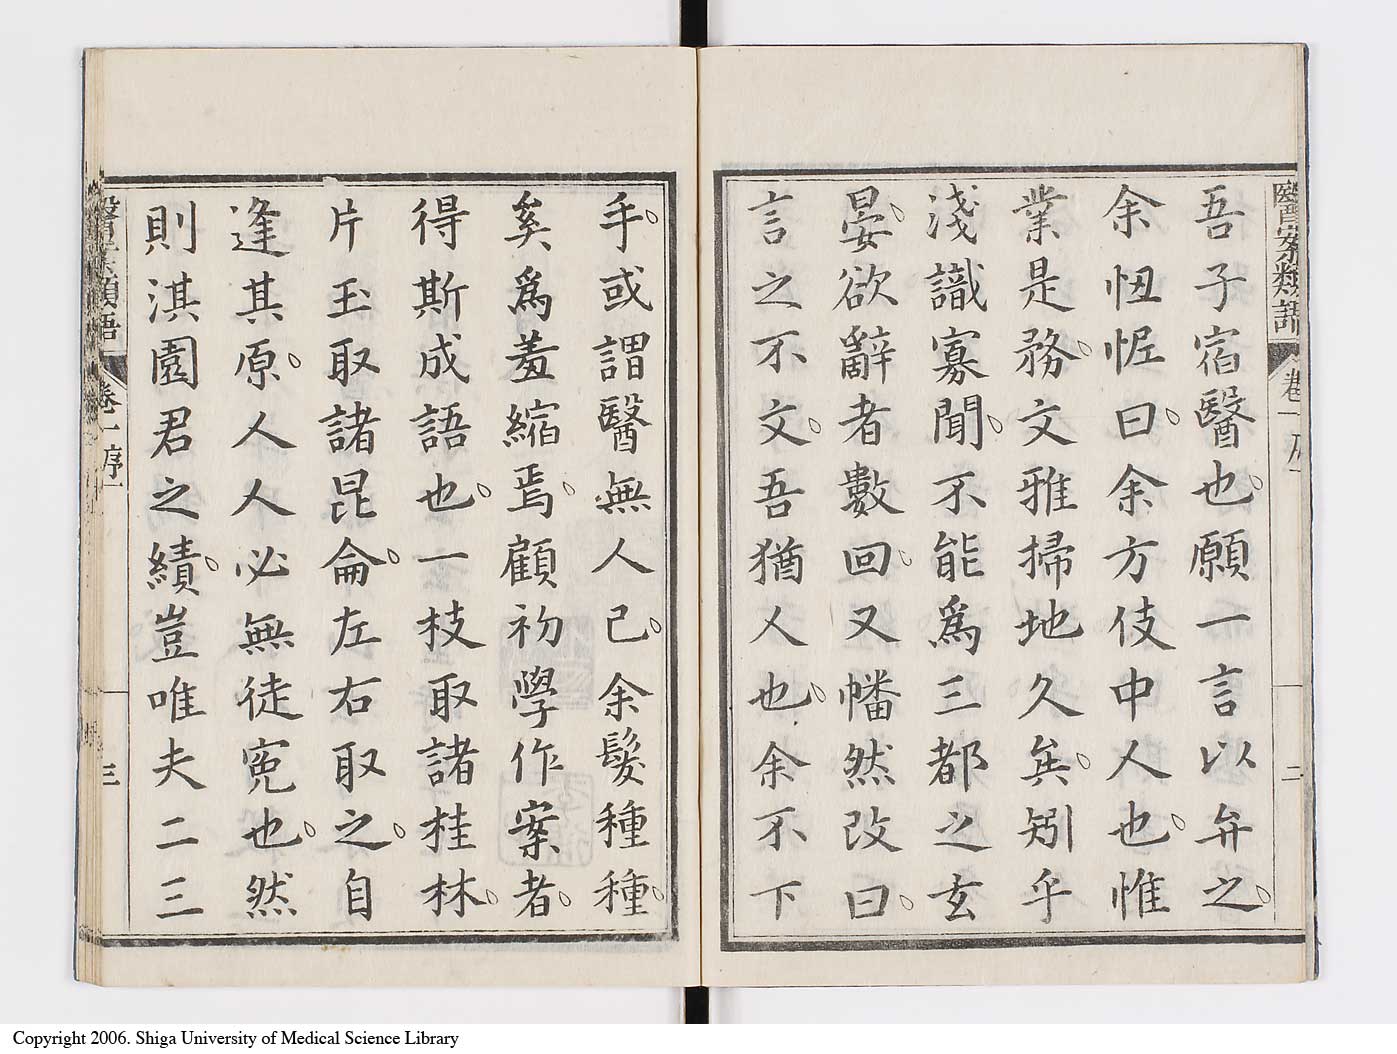 醫案類語
卷一
序
二
吾子宿醫也願一言以弁之
余忸怩曰余方伎中人也惟
業是務文雅掃地久矣矧乎
淺識寡聞不能爲三都之玄
晏欲辭者數回又幡然改曰
言之不文吾猶人也余不下
手或謂醫無人已余髮種種
矣爲羞縮焉顧初學作案者
得斯成語也一枝取諸桂林
片玉取諸昆侖左右取之自
逢其原人人必無徒寃也然
則淇園君之績豈唯夫二三
醫案類語
卷一
序
三
Copyright 2006. Shiga University of Medical Science Library